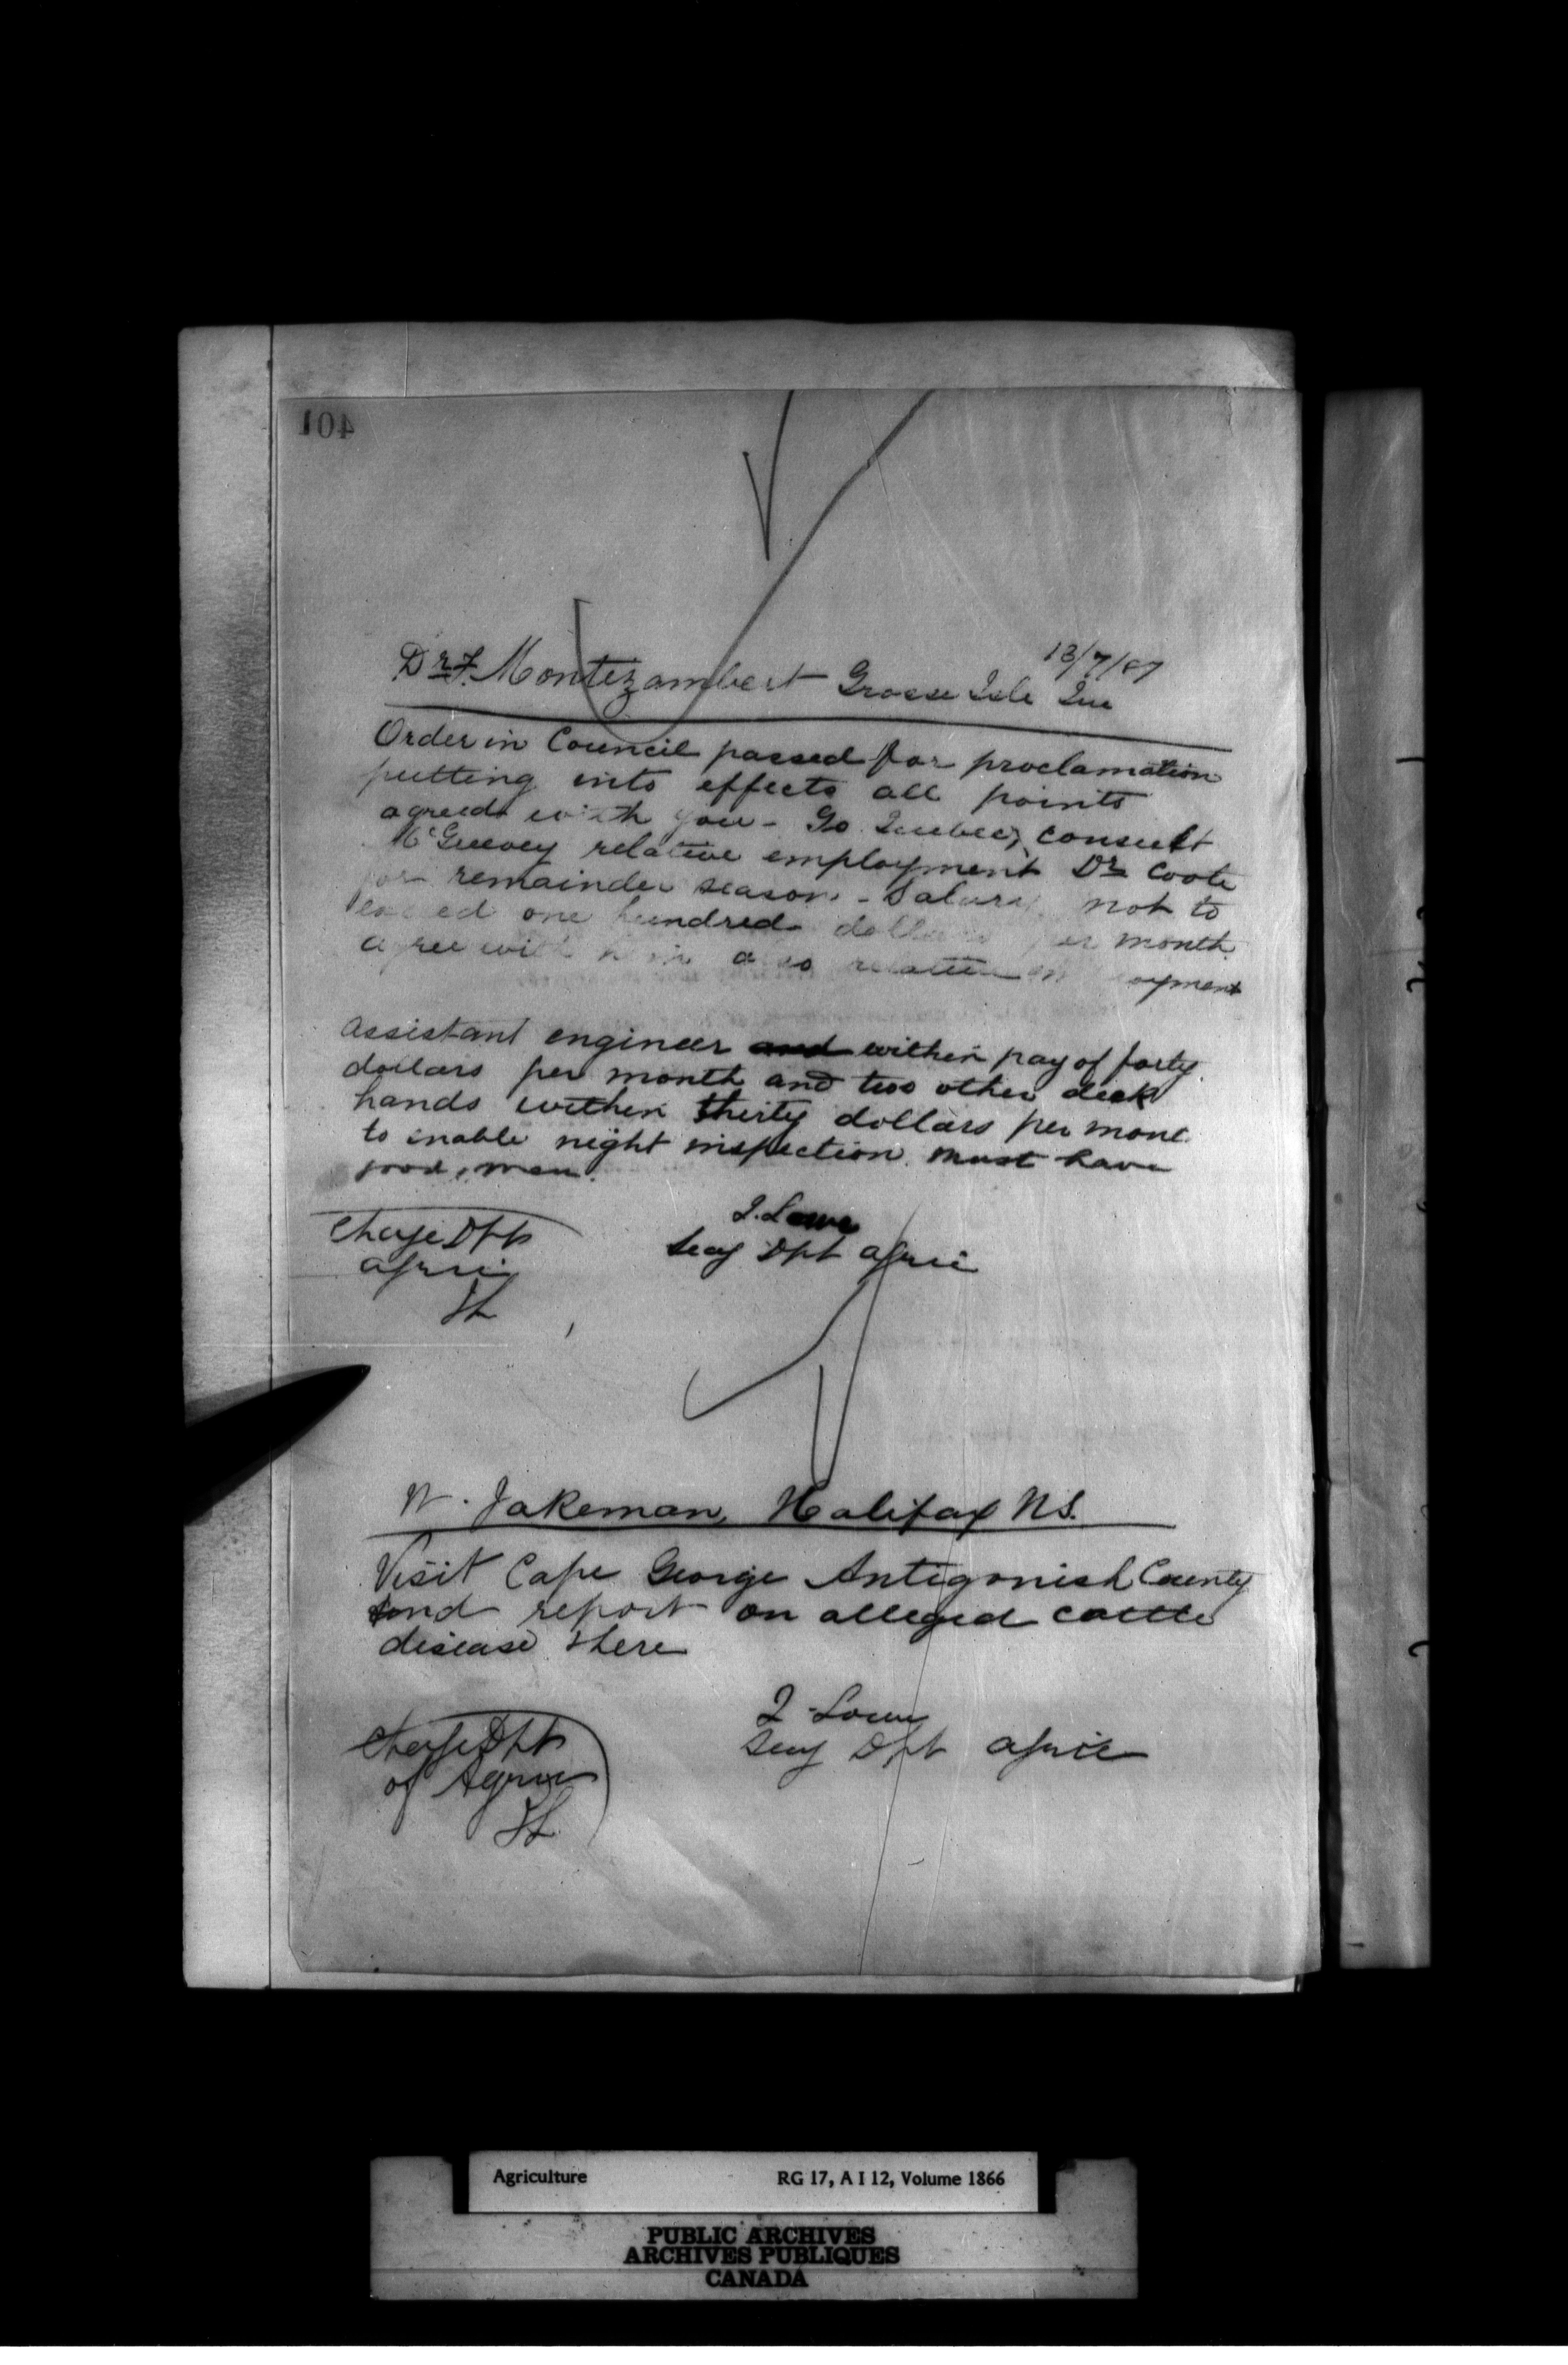 401
13/7/87
Dr. F. Montizambert Grosse Isle Que
Order in Council passed for proclamation
putting into effects all points
agreed with you - Go Quebec, consult
McGreevey relative employment Dr Coote
for remainder season - Salary not to
exceed one hundred dollars per month
agree with him also relative employment
assistant engineer and within pay of forty
dollars per month and two other deck
hands within thirty dollars per mont
to enable night inspection must have
good men.
J. Lowe
Secy Dpt Agric
Charge Dpt
Agric
JL
W. Jakeman, Halifax N.S.
Visit Cape George Antigonish County
and report on alleged cattle
disease there
J. Lowe
Secy Dpt Agric
Charge Dpt
of Agric
JL
Agriculture RG 17, A I 12, Volume 1866
PUBLIC ARCHIVES
ARCHIVES PUBLIQUES
CANADA